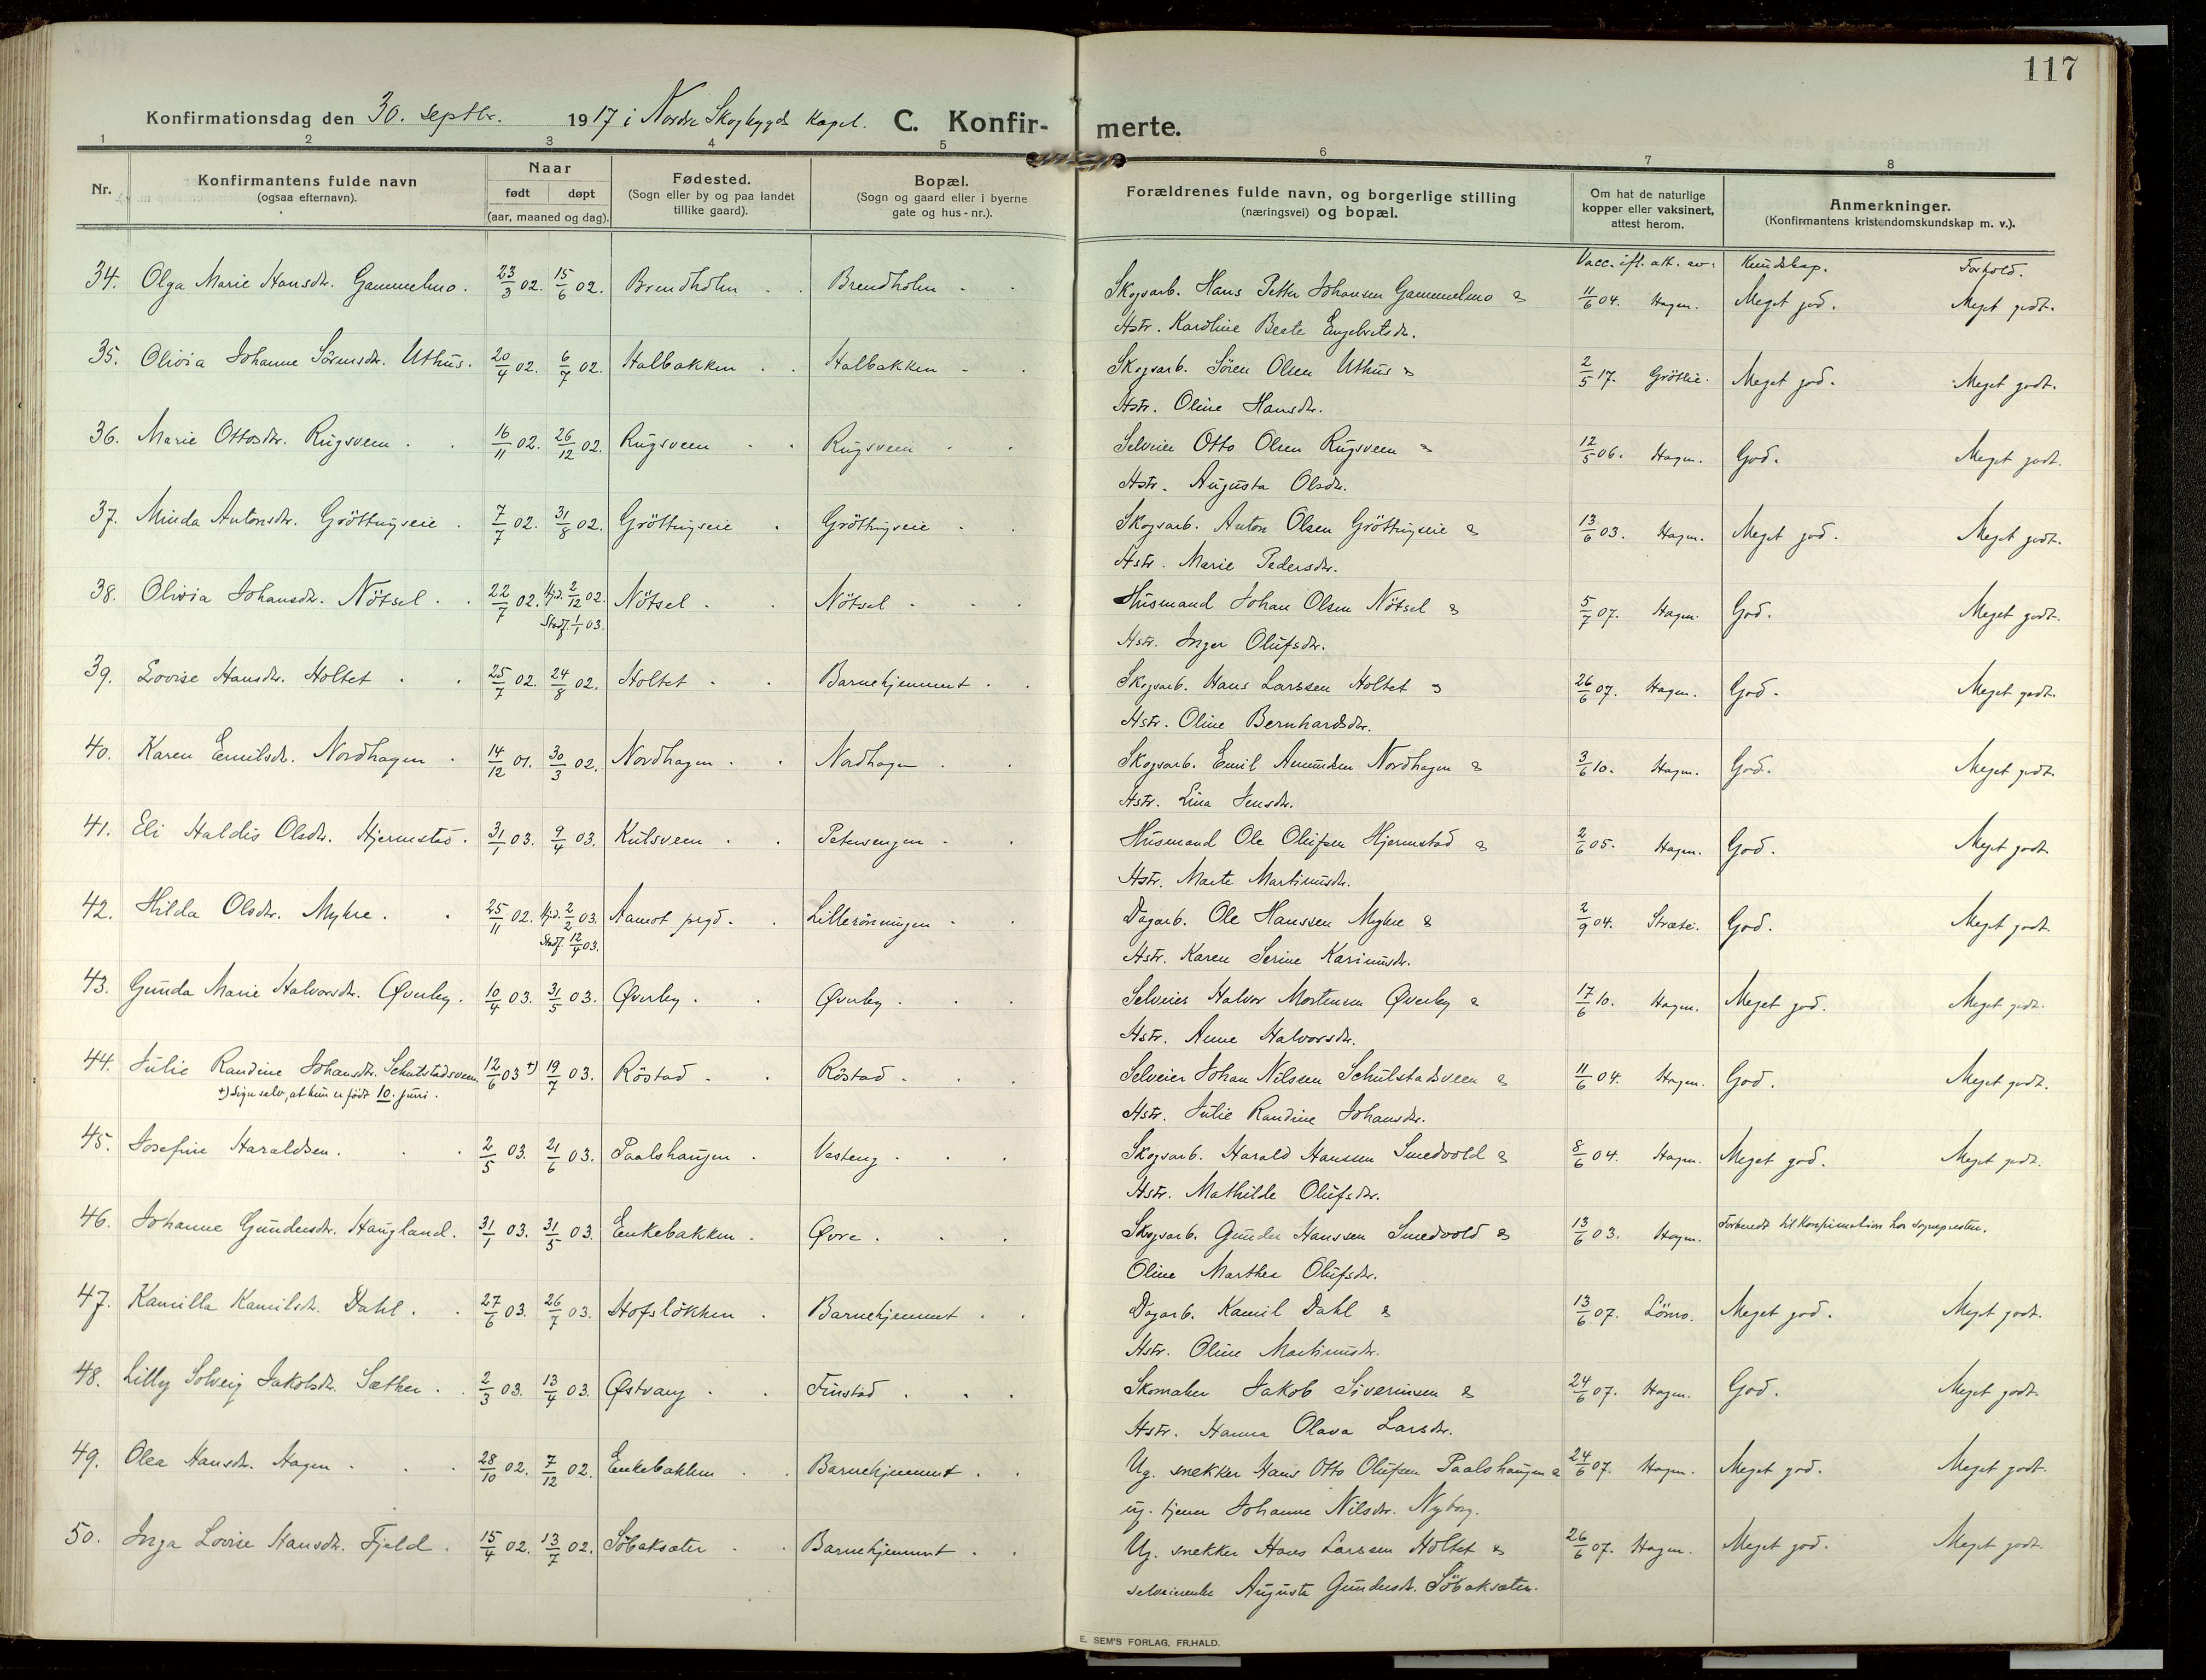 117
Konfirmationsdag den 30. septbr. 1917 i Nordre Skogbygds Kapel. C. Konfir- merte.
1 2 3 4 5 6 7 8
Nr. Konfirmantens fulde navn (ogsaa efternavn). Naar født døpt (aar, maaned og dag). Fødested. (Sogn eller by og paa landet tillike gaard). Bopæl. (Sogn og gaard eller i byerne gate og hus-nr.). Forældrenes fulde navn, og borgerlige stilling (næringsvei) og bopæl. Om hat de naturlige kopper eller vaksinert, attest herom. Anmerkninger. (Konfirmantens kristendomskundskap m. v.).
Vacc. ifl. att. av: Kundskap. Forhold.
34. Olga Marie Hansdtr. Gammelmo. 23/3 02. 15/6 02. Brendholm Brendholm Skogsarb. Hans Petter Johansen Gammelmo & 11/6 04. Hagen. Meget god. Meget godt.
Hstr. Karoline Beate Engebretsdtr.
35. Olivia Johanne Sörensdtr. Uthus. 20/4 02. 6/7 02. Halbakken Halbakken Skogsarb. Sören Olsen Uthus & 2/5 17. Gröttie. Meget god. Meget godt.
Hstr. Oline Hansdtr.
36. Marie Ottosdtr. Rugsveen 16/11 02. 26/12 02. Rugsveen Rugsveen Selveier Otto Olsen Rugsveen & 12/5 06. Hagen. God. Meget godt.
Hstr. Augusta Olsdtr.
37. Minda Antonsdtr. Gröttingseie 7/7 02. 31/8 02. Gröttingseie Gröttingseie Skogsarb. Anton Olsen Gröttingseie & 13/6 03. Hagen. Meget god. Meget godt.
Hstr. Marie Pedersdtr.
38. Olivia Johansdtr. Nötsel 22/7 02. Hjd. 2/12 02. Nötsel Nötsel Husmand Johan Olsen Nötsel & 5/7 07. Hagen. God. Meget godt.
Stadf. 1/1 03. Hstr. Inger Olufsdtr.
39. Lovise Hansdtr. Holtet 25/7 02. 24/8 02. Holtet Barnehjemmet Skogsarb. Hans Larssen Holtet & 26/6 07. Hagen. God. Meget godt.
Hstr. Oline Bernhardsdtr.
40. Karen Emilsdtr. Nordhagen 14/12 01. 30/3 02. Nordhagen Nordhagen Skogsarb. Emil Amundsen Nordhagen & 3/6 10. Hagen. God. Meget godt.
Hstr. Lina Jensdtr.
41. Eli Haldis Olsdtr. Hjermstad. 31/1 03. 9/4 03. Kulsveen Petersengen Husmand Ole Olufsen Hjermstad & 2/6 05. Hagen. God. Meget godt.
Hstr. Marte Martinusdtr.
42. Hilda Olsdtr. Myhre. 25/11 02. Hjd. 2/2 03. Aamot prgd. Lillerönningen Dagarb. Ole Hanssen Myhre & 2/9 04. Stræte. God. Meget godt.
Stadf. 12/4 03. Hstr. Karen Serine Karinusdtr.
43. Gunda Marie Halvorsdtr. Øverby. 10/4 03. 31/5 03. Øverby. Øverby. Selveier Halvor Mortensen Øverby & 17/6 10. Hagen. Meget god. Meget godt.
Hstr. Anne Halvorsdtr.
44. Julie Randine Johansdtr. Schulstadsveen 12/6 03 +) 19/7 03. Röstad Röstad Selveier Johan Nilssen Schulstadsveen & 11/6 04. Hagen. God. Meget godt.
+) Siger selv, at hun er født 10. juni. Hstr. Julie Randine Johansdtr.
45. Josefine Haraldsen. 2/5 03. 21/6 03. Paalshaugen Vesteng Skogsarb. Harald Hanssen Smedvold & 8/6 04. Hagen. Meget god. Meget godt.
Hstr. Mathilde Olufsdtr.
46. Johanne Gundersdtr. Haugland. 31/1 03. 31/5 03. Enkebakken Øvre Skogsarb. Gunder Hanssen Smedvold & 13/6 03. Hagen. Forberedt til Konfirmation hos sogneprésten.
Oline Marthea Olufsdtr.
47. Kamilla Kamilsdtr. Dahl. 27/6 03. 26/7 03. Hofslökken Barnehjemmet Dagarb. Kamil Dahl & 13/6 07. Lömo. Meget god. Meget godt.
Hstr. Oline Martinusdtr.
48. Lilly Solveig Jakobsdtr. Sæther. 2/3 03. 13/4 03. Østvang Finstad Skomaker Jakob Siverinsen & 24/6 07. Hagen. God. Meget godt.
Hstr. Hanna Olava Larsdtr.
49. Olea Hansdtr. Hagen 28/10 02. 7/12 02. Enkebakken Barnehjemmet Ug. snekker Hans Otto Olufsen Paalshaugen & 24/6 07. Hagen. Meget god. Meget godt.
ug. tjener Johanne Nilsdtr. Nyborg.
50. Inga Lovise Hansdtr. Fjeld. 15/4 02. 13/7 02. Söbaksæter Barnehjemmet Ug. snekker Hans Larssen Holtet & 26/6 07. Hagen. Meget god. Meget godt.
selveierenke Augusta Gundersdtr. Söbaksæter.
E. SEM'S FORLAG, FR.HALD.